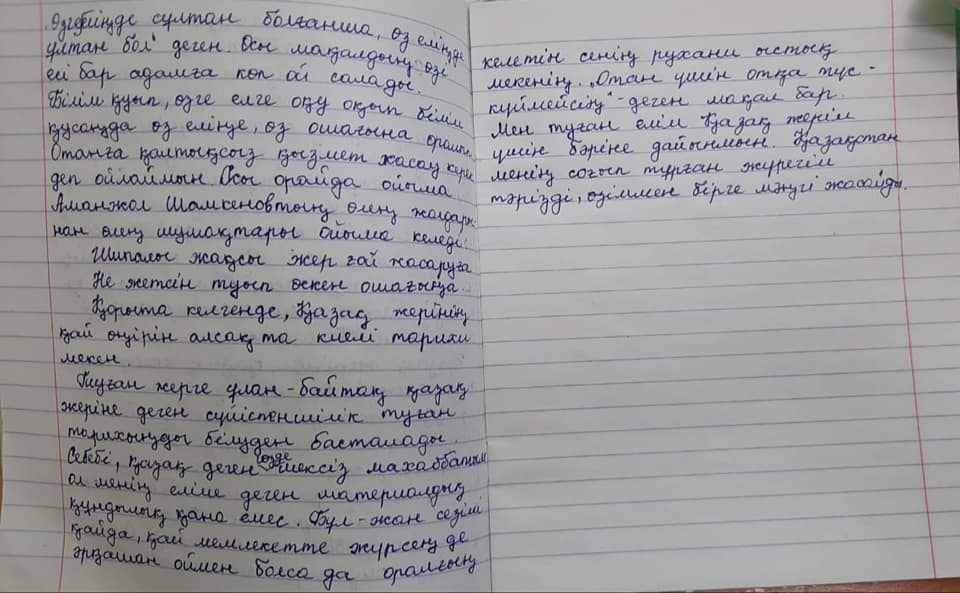 Өзгенің елінде сұлтан болғанша, өз еліңде
ұлтан бол" деген. Осы мақалдың өзі
есі бар адамға көп ой салады.
Білім қуып, өзге елге оқу оқып білім
қусаңда өз еліңе, өз ошағына оралып.
Отанға қалтықсыз қызмет жасау керек
деп ойлаймын. Осы орайда ойыма
Аманжол Шамкеновтың өлең жолдары
нан өлең шумақтары ойыма келеді:
Шипалы жақсы жер ғой жасаруға
Не жетсін туып өскен ошағыңа.
Қорыта келгенде, Қазақ жерінің
қай өңірін алсақ та киелі тарихи
мекен.
Туған жерге ұлан-байтақ қазақ
жеріне деген сүйіспеншілік туған
тарихыңды білуден басталады.
Себебі, қазақ деген сөзде шексіз махаббатым
ол менің еліме деген материалдық
құндылық қана емес. Бұл - жан сезімі
қайда, қай мемлекетте жүрсең де
әрқашан оймен болса да оралғың
келетін сенің рухани ыстық
мекенің. „Отан үшін отқа түс -
күймейсің" - деген мақал бар.
Мен туған елім Қазақ жерім
үшін бәріне дайынмын. Қазақстан
менің соғып тұрған жүрегім
тәрізді, өзіммен бірге мәңгі жасайды.